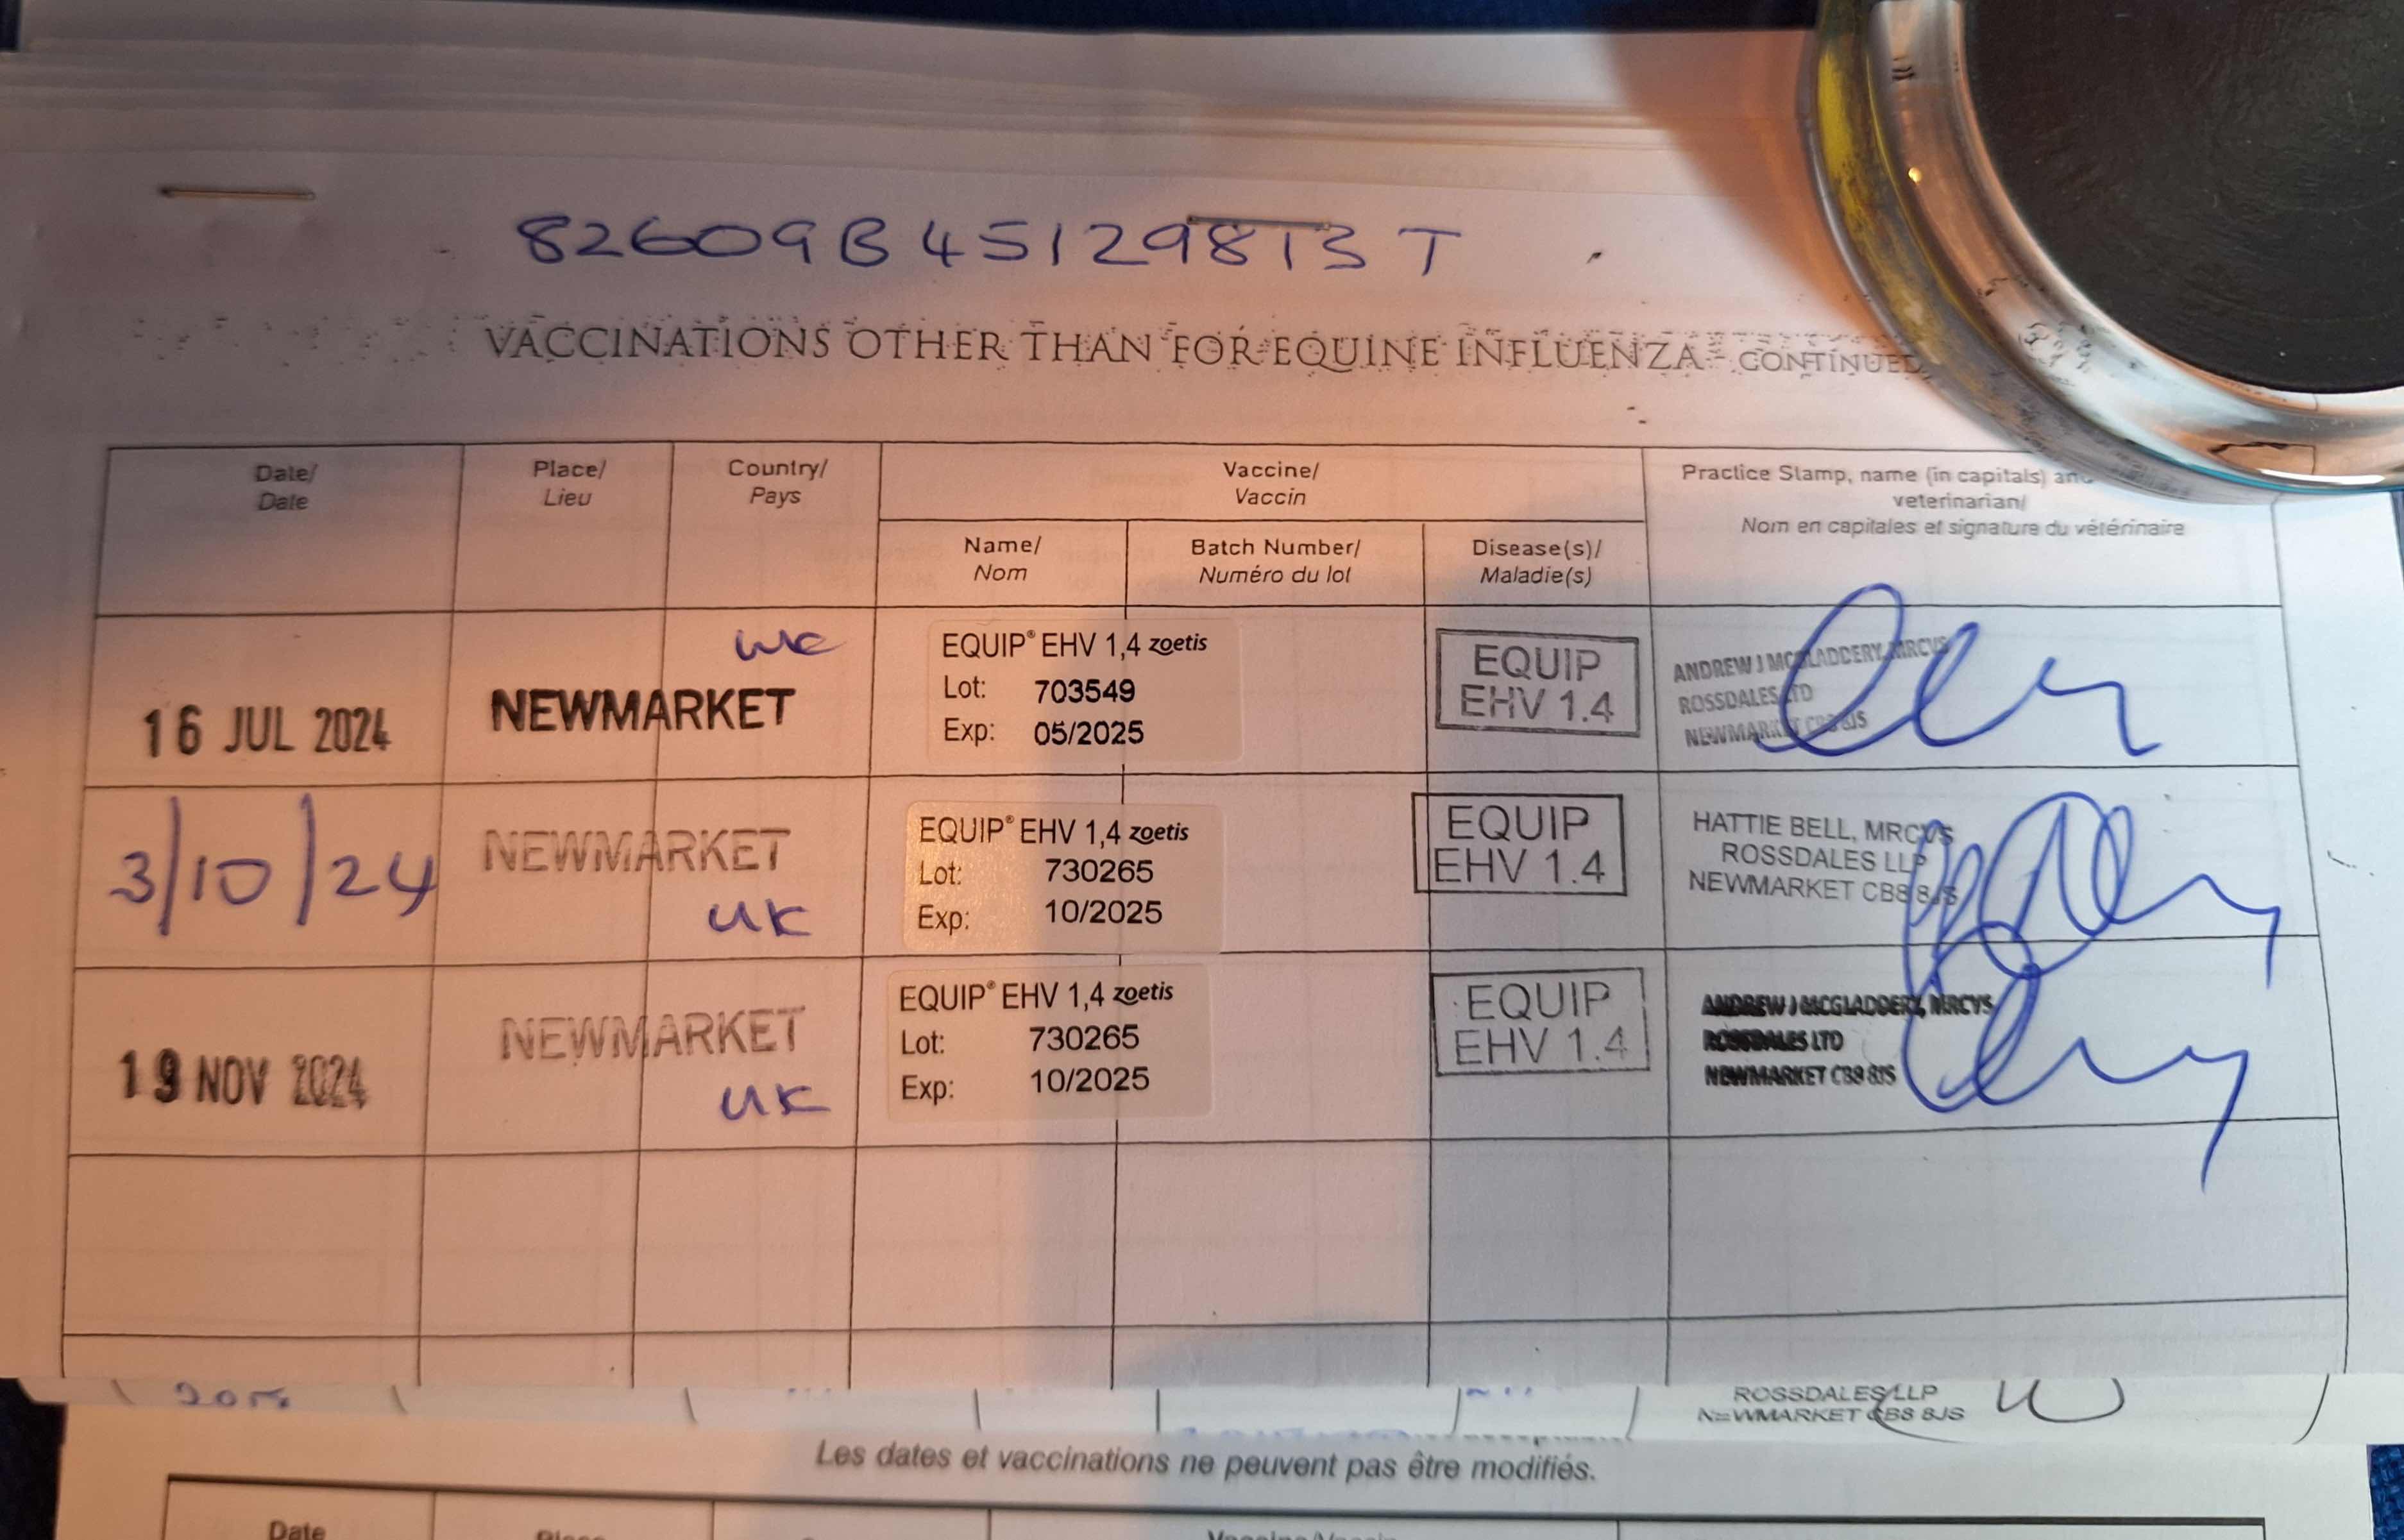 82609B45129813T
VACCINATIONS OTHER THAN FOR EQUINE INFLUENZA - CONTINUED
Date/
Date
Place/
Lieu
Country/
Pays
Vaccine/
Vaccin
Name/
Nom
Batch Number/
Numéro du lot
Disease(s)/
Maladie(s)
Practice Stamp, name (in capitals) and
veterinarian/
Nom en capitales et signature du vétérinaire
16 JUL 2024
NEWMARKET
UK
EQUIP® EHV 1,4 zoetis
Lot: 703549
Exp: 05/2025
EQUIP
EHV 1.4
ANDREW J MCGLADDERY, MRCVS
ROSSDALES LTD
NEWMARKET CB8 8JS
3/10/24
NEWMARKET
UK
EQUIP® EHV 1,4 zoetis
Lot: 730265
Exp: 10/2025
EQUIP
EHV 1.4
HATTIE BELL, MRCVS
ROSSDALES LLP
NEWMARKET CB8 8JS
19 NOV 2024
NEWMARKET
UK
EQUIP® EHV 1,4 zoetis
Lot: 730265
Exp: 10/2025
EQUIP
EHV 1.4
ANDREW J MCGLADDERY, MRCVS
ROSSDALES LTD
NEWMARKET CB8 8JS
ROSSDALES LLP
NEWMARKET CB8 8JS
Les dates et vaccinations ne peuvent pas être modifiés.
Date
Place